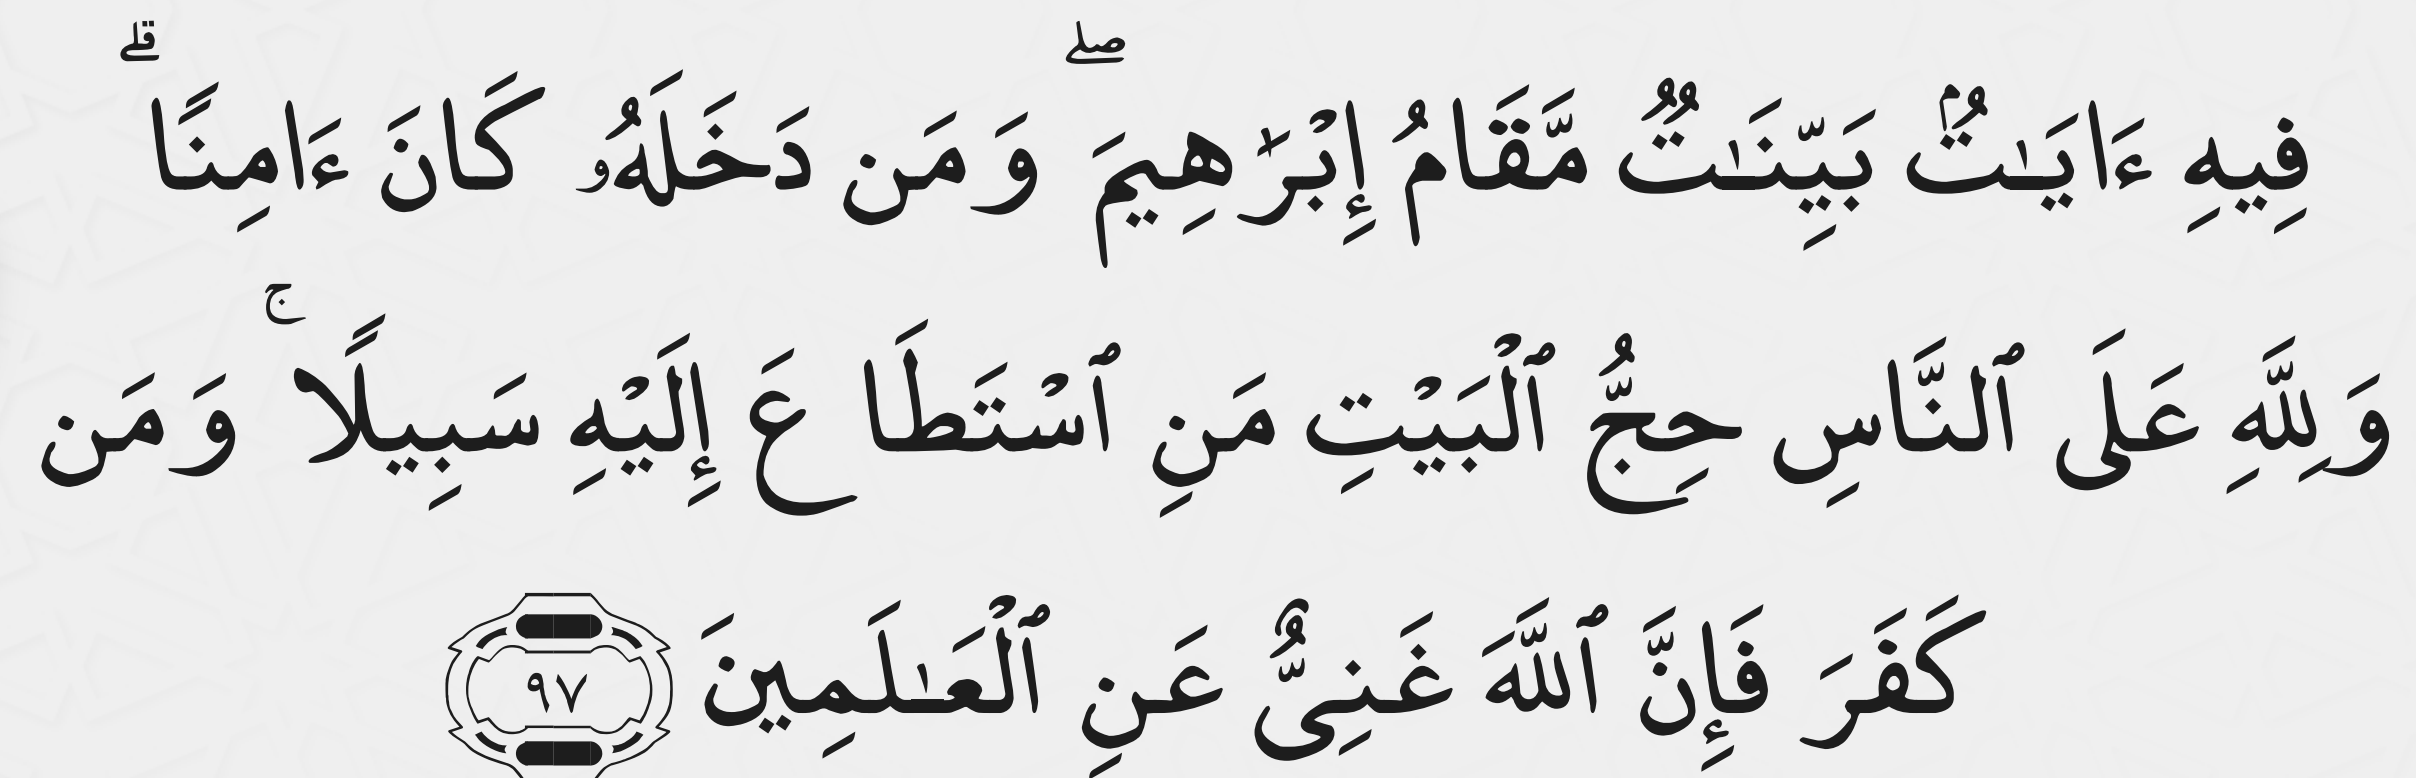 فِيهِ ءَايَـٰتُۢ بَيِّنَـٰتٌ مَّقَامُ إِبْرَٰهِيمَ ۖ وَمَن دَخَلَهُۥ كَانَ ءَامِنًا ۗ
وَلِلَّهِ عَلَى ٱلنَّاسِ حِجُّ ٱلْبَيْتِ مَنِ ٱسْتَطَاعَ إِلَيْهِ سَبِيلًا ۚ وَمَن
كَفَرَ فَإِنَّ ٱللَّهَ غَنِىٌّ عَنِ ٱلْعَـٰلَمِينَ ٩٧